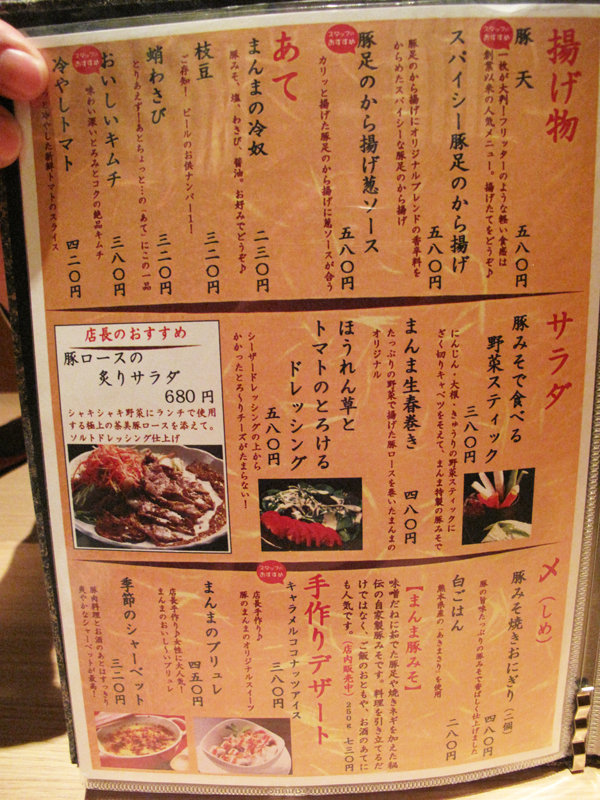 揚げ物
スタッフのおすすめ
豚天
一枚が大判！フリッターのような軽い食感は
創業以来の人気メニュー。揚げたてをどうぞ♪
五八〇円
スパイシー豚足のから揚げ
豚足のから揚げにオリジナルブレンドの香辛料を
からめたスパイシーな豚足のから揚げ
五八〇円
スタッフのおすすめ
豚足のから揚げ葱ソース
カリッと揚げた豚足のから揚げに葱ソースが合う
五八〇円
あて
まんまの冷奴
豚みそ、塩、わさび、醤油。お好みでどうぞ♪
二三〇円
枝豆
ご存知！ビールのお供ナンバー1！
三二〇円
蛸わさび
とりあえず！あとちょっと…の「あて」にこの一品
三二〇円
スタッフのおすすめ
おいしいキムチ
味わい深いとろみとコクの絶品キムチ
三八〇円
冷やしトマト
冷やした新鮮トマトのスライス
四二〇円
サラダ
豚みそで食べる
野菜スティック
三八〇円
にんじん・大根・きゅうりの野菜スティックに
ざく切りキャベツをそえて、まんま特製の豚みそで
まんま生春巻き
四八〇円
たっぷりの野菜で揚げた豚ロースを巻いたまんまの
オリジナル
ほうれん草と
トマトのとろける
ドレッシング
五八〇円
シーザードレッシングの上から
かかったとろ〜りチーズがたまらない！
店長のおすすめ
豚ロースの
炙りサラダ
680円
シャキシャキ野菜にランチで使用
する極上の茶美豚ロースを添えて。
ソルトドレッシング仕上げ
〆（しめ）
豚みそ焼きおにぎり（二個）
四八〇円
豚の旨味たっぷりの豚みそで香ばしく仕上げました
白ごはん
二八〇円
熊本県産の「あきまさり」を使用
【まんま豚みそ】
味噌だれに茹でた豚足や焼きネギを加えた秘
伝の自家製豚みそです。料理を引き立てるだ
けではなく、ご飯のおともや、お酒のあてに
も人気です。（店内販売中）250g 七三〇円
手作りデザート
スタッフのおすすめ
キャラメルココナッツアイス
三八〇円
店長手作り♪
豚のまんまのオリジナルスイーツ
まんまのブリュレ
四五〇円
店長手作り♪女性に大人気！
まんまのおいし〜いブリュレ
季節のシャーベット
三二〇円
豚肉料理とお酒のあとはすっきり
爽やかなシャーベットが最高！